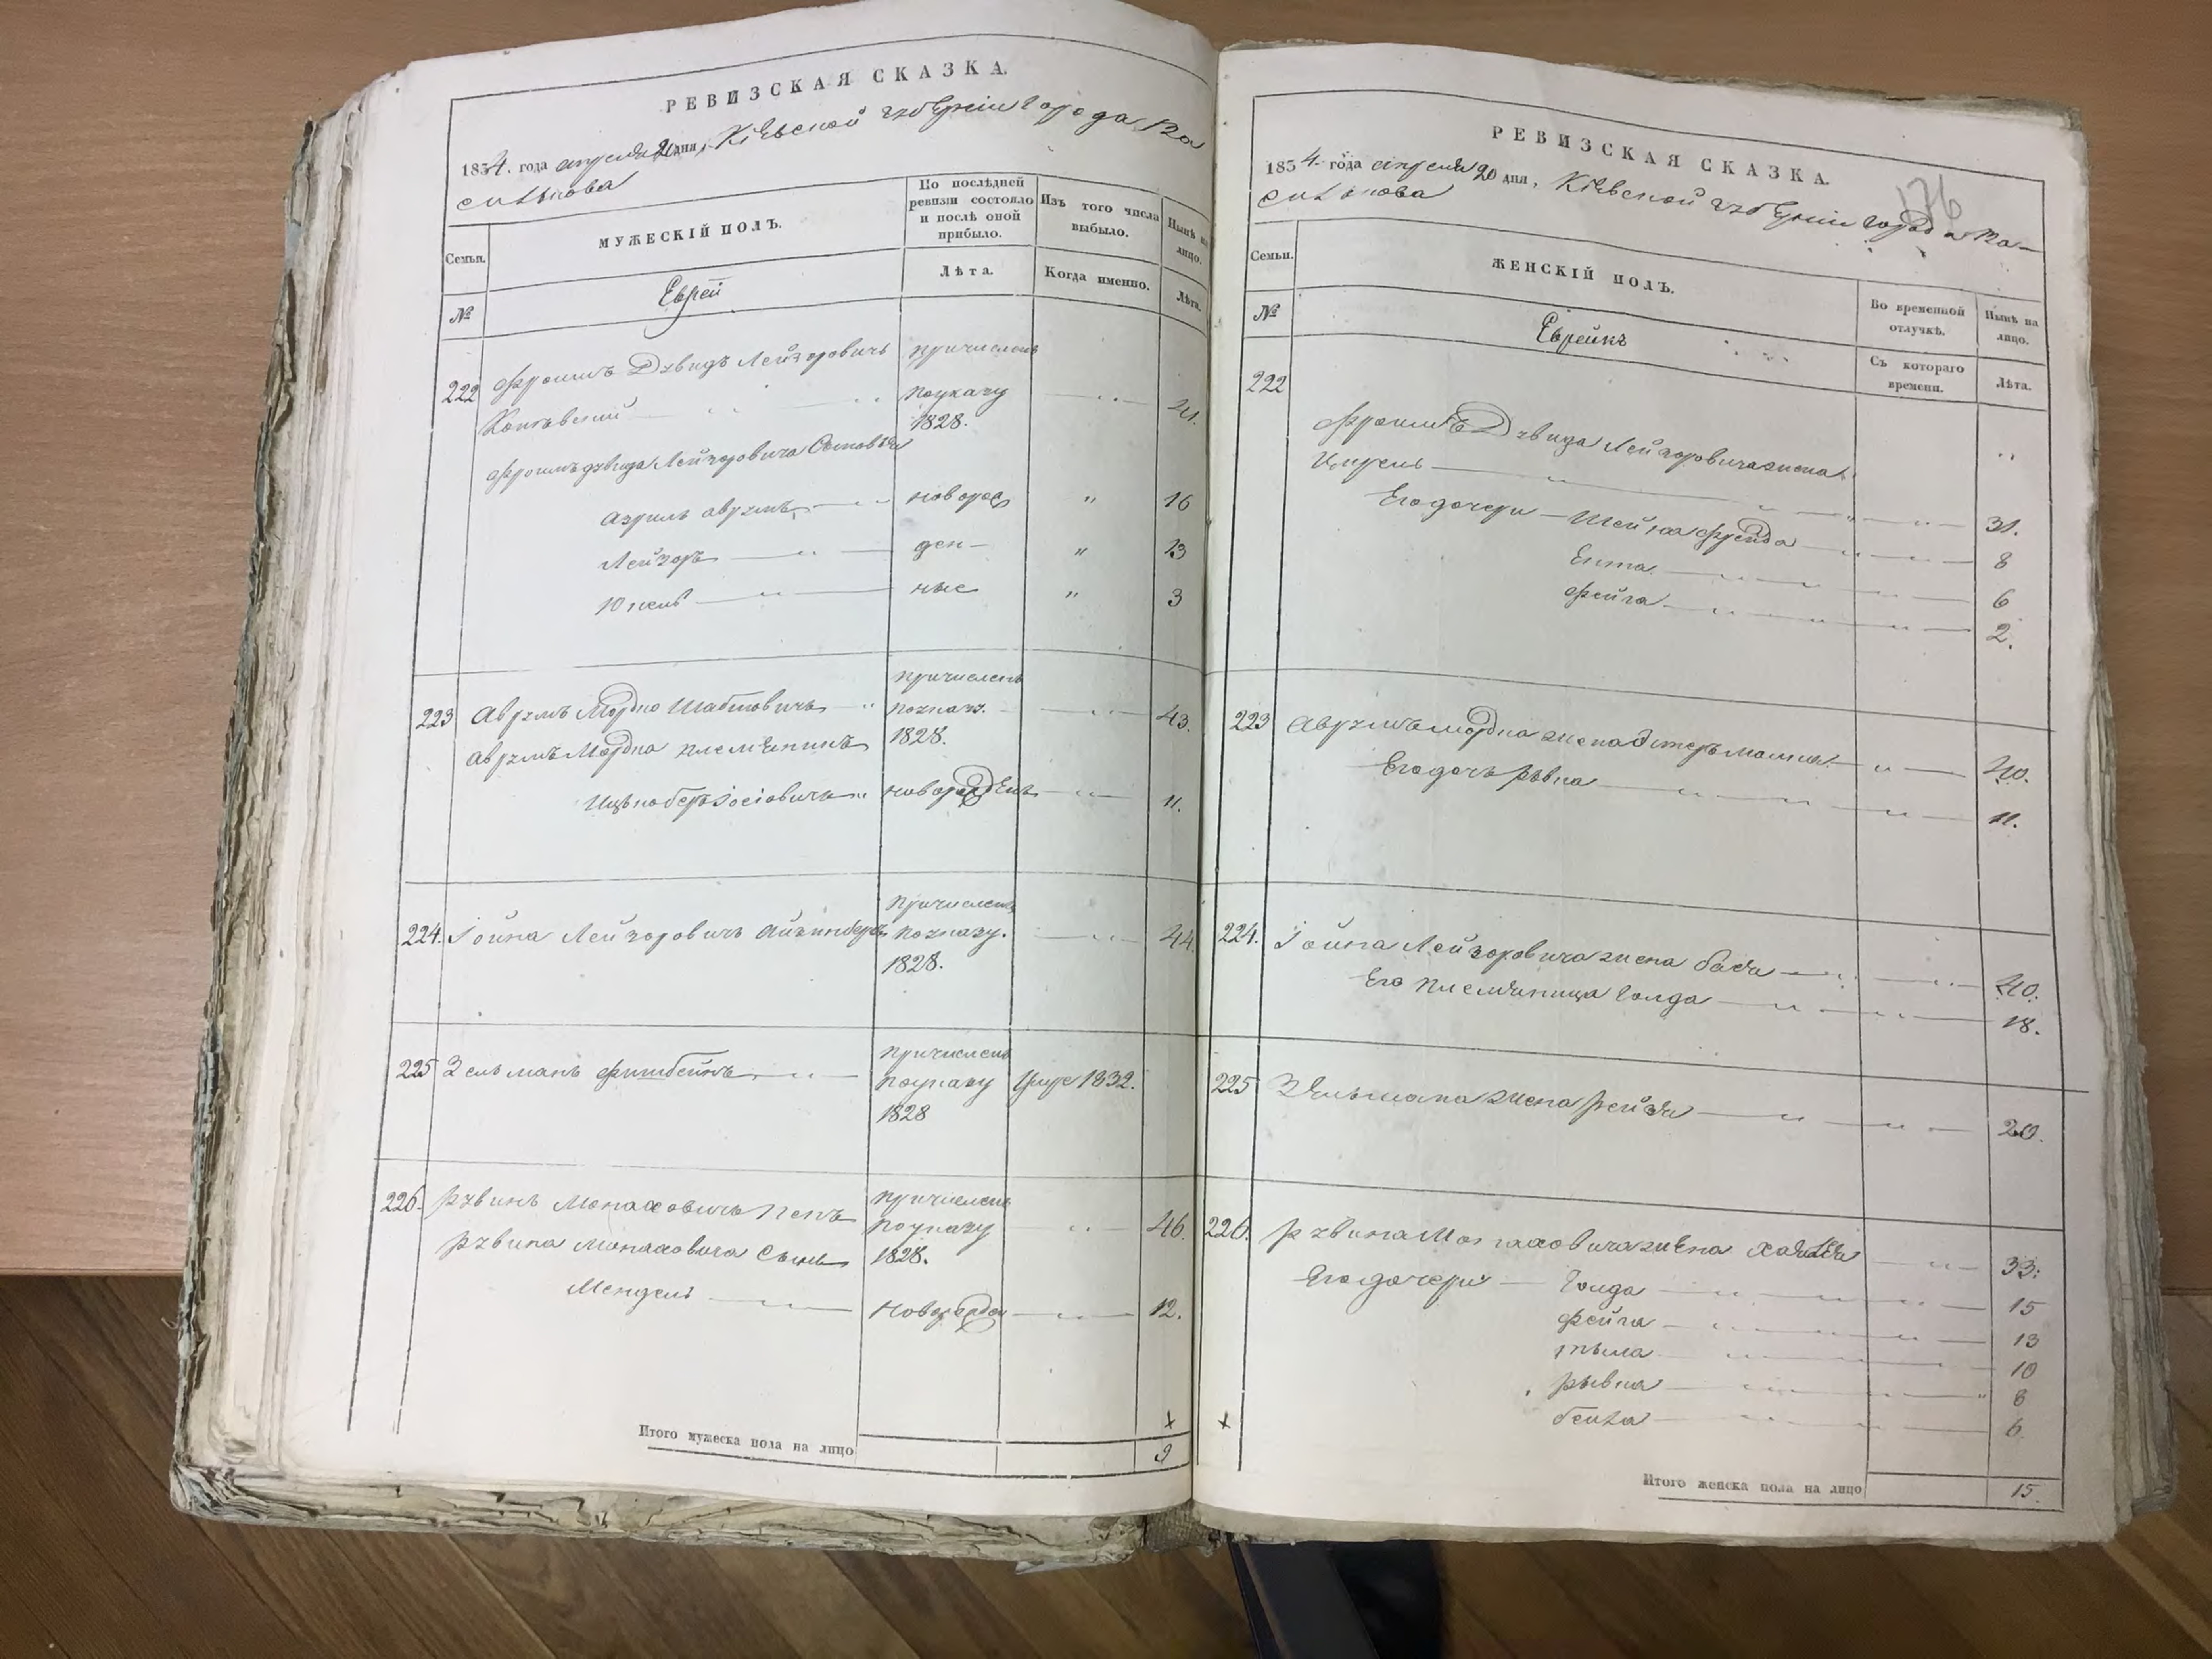 РЕВИЗСКАЯ СКАЗКА.
1854. года апреля 20 дня, Кіевской губерніи города Ва
силькова
Семьи.
МУЖЕСКІЙ ПОЛЪ.
По послѣдней
ревизіи состояло
и послѣ оной
прибыло.
Изъ того числа
выбыло.
Нынѣ на
лицо.
Лѣта.
Когда именно.
Лѣта.
№
Еврей
222
Фроимъ Дувидъ Лейзоровичъ
причисленъ
поуказу
1828.
41.
Фроимъ дувида Лейзоровича Сыновья
Азриль аврумъ
новорож
"
16
Лейзоръ
ден-
"
13
ные
"
3
223
Аврумъ Мордко Шабтовичъ
причисленъ
поуказу.
1828.
43.
Аврумъ Мордка племянникъ
Ицько беръ Іосіовичъ
новорожденъ
11.
224.
Іойна Лейзоровичъ
причисленъ
поуказу.
1828.
44
225
Зельманъ фишбейнъ
причисленъ
поуказу
1828
Умре 1832.
226.
Рувинъ Монасовичъ
причисленъ
поуказу
1828.
46.
Рувина Монасовича Сынъ
Мендель
новорожден
12.
х
Итого мужеска пола на лицо
9
РЕВИЗСКАЯ СКАЗКА.
176
1854. года апреля 20 дня, Кіевской губерніи города Ва-
силькова
Семьи.
ЖЕНСКІЙ ПОЛЪ.
Во временной
отлучкѣ.
Нынѣ на
лицо.
№
Еврейкъ
Съ котораго
времени.
Лѣта.
222
Фроимъ Дувида Лейзоровича жена
31.
Его дочери — Шейна фрейда
8
Ента
6
фейга
2.
223
Аврумъ мордка жена Эстеръ малка
40.
Его дочь Рывка
11.
224.
Іойна Лейзоровича жена бася
40.
Его племяница Голда
18.
225
Зельмана жена Рейзя
20.
226.
Рувина Монасовича жена
33.
Его дочери — Голда
15
фейга
13
10
Рывка
" 8
бейла
6
х
Итого женска пола на лицо
15.